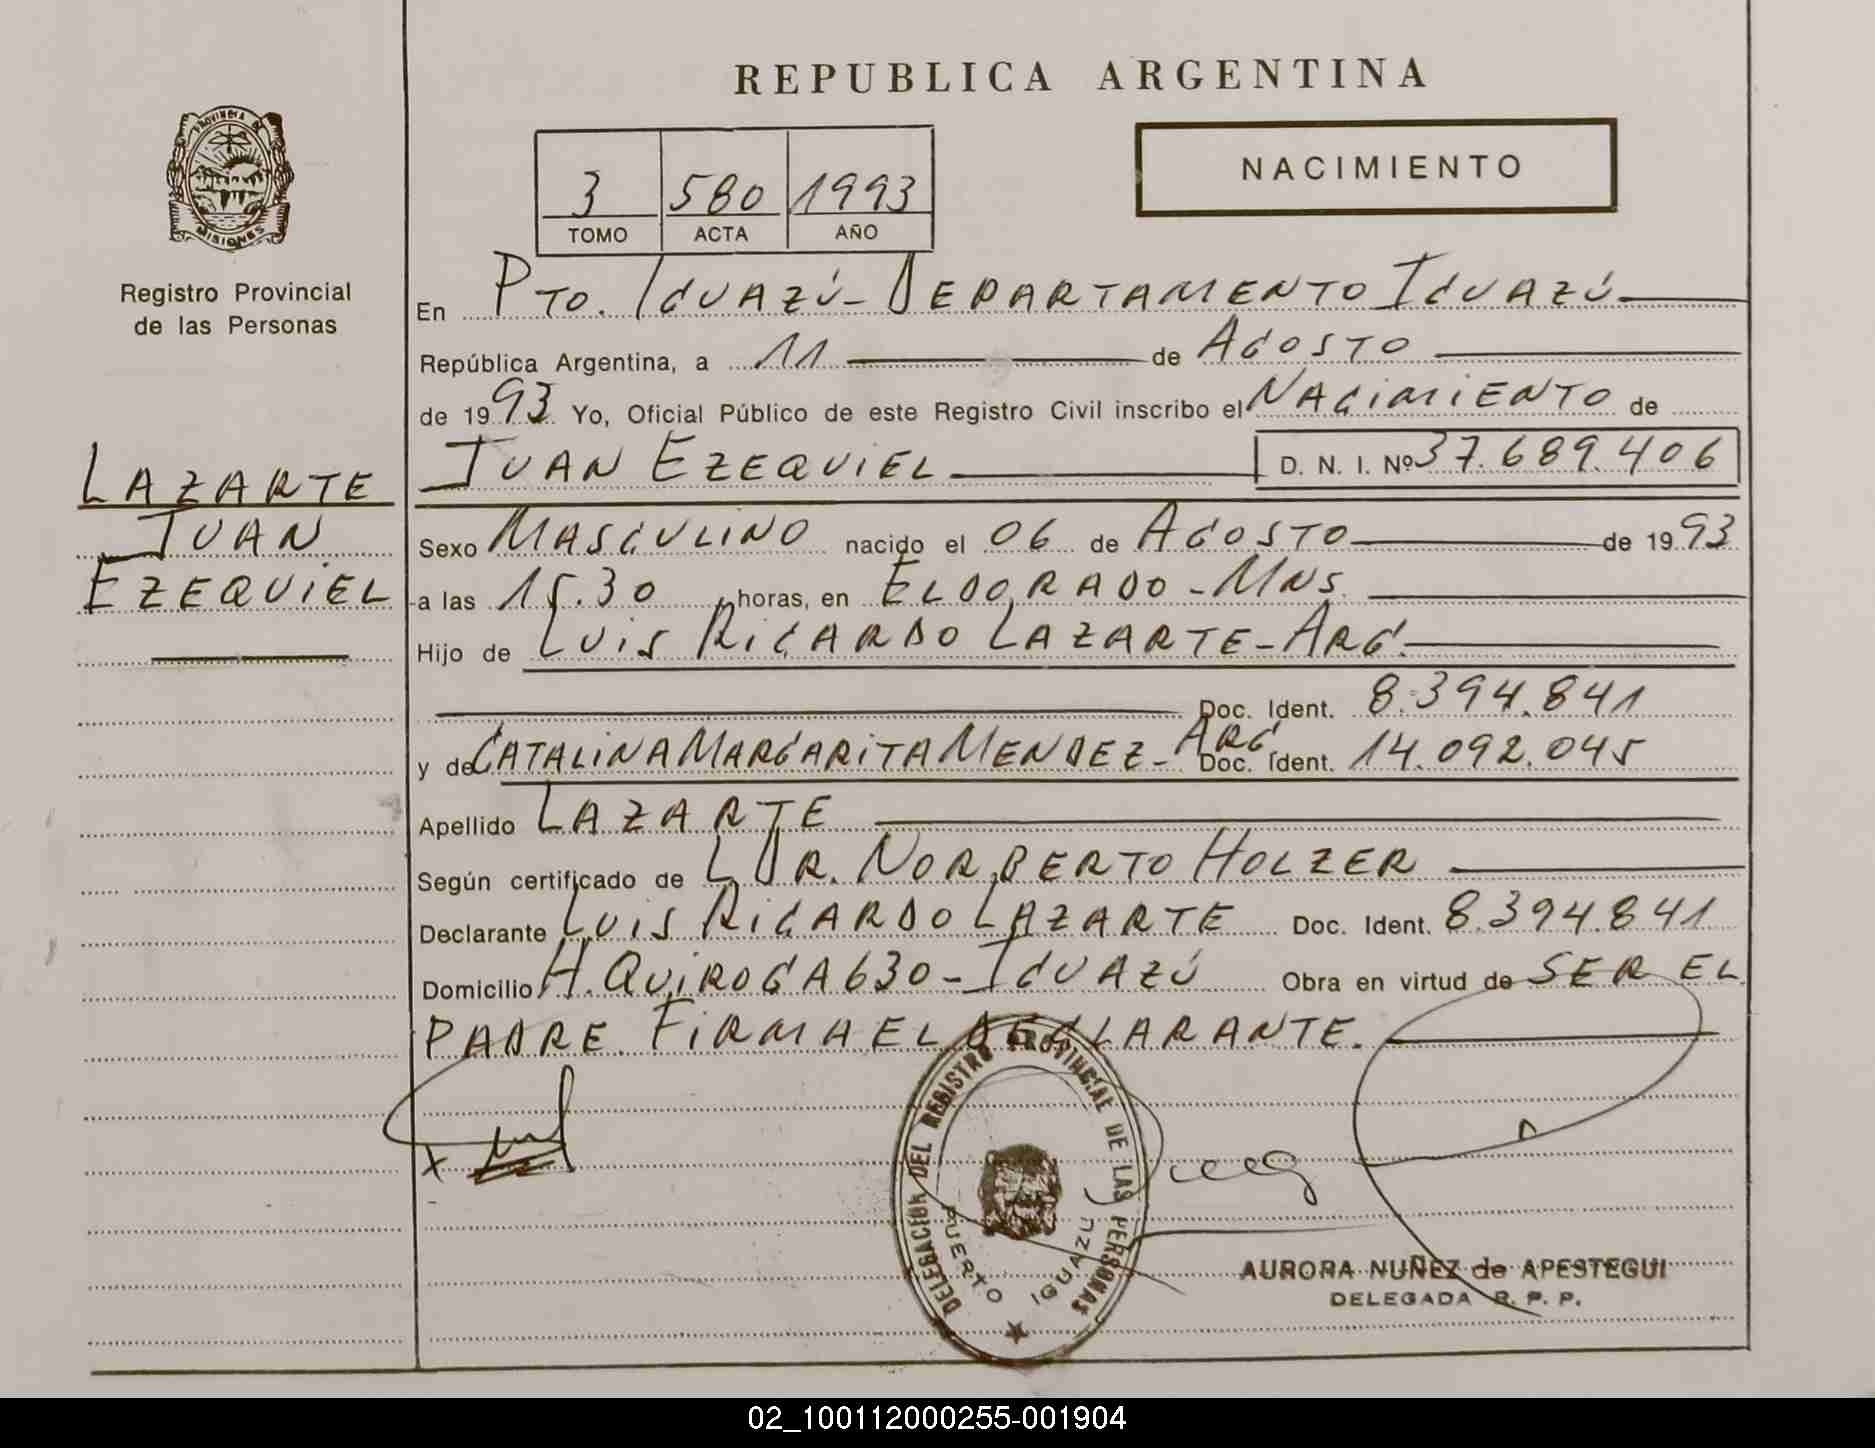 REPUBLICA ARGENTINA
PROVINCIA DE
MISIONES
Registro Provincial
de las Personas
3 580 1993
TOMO ACTA AÑO
NACIMIENTO
En PTO. IGUAZÚ - DEPARTAMENTO IGUAZÚ
República Argentina, a 11 de AGOSTO
de 1993 Yo, Oficial Público de este Registro Civil inscribo el NACIMIENTO de
JUAN EZEQUIEL D. N. I. Nº 37.689.406
LAZARTE
JUAN
EZEQUIEL
Sexo MASCULINO nacido el 06 de AGOSTO de 1993
a las 15.30 horas, en ELDORADO - MNS.
Hijo de LUIS RICARDO LAZARTE - ARG.
Doc. Ident. 8.394.841
y de CATALINA MARGARITA MENDEZ - ARG. Doc. Ident. 14.092.045
Apellido LAZARTE
Según certificado de L DR. NORBERTO HOLZER
Declarante LUIS RICARDO LAZARTE Doc. Ident. 8.394.841
Domicilio H. QUIROGA 630 - IGUAZÚ Obra en virtud de SER EL
PADRE. FIRMA EL DECLARANTE.
X
DELEGACION DEL REGISTRO PROVINCIAL DE LAS PERSONAS
PUERTO IGUAZU
AURORA NUÑEZ de APESTEGUI
DELEGADA R. P. P.
02_100112000255-001904